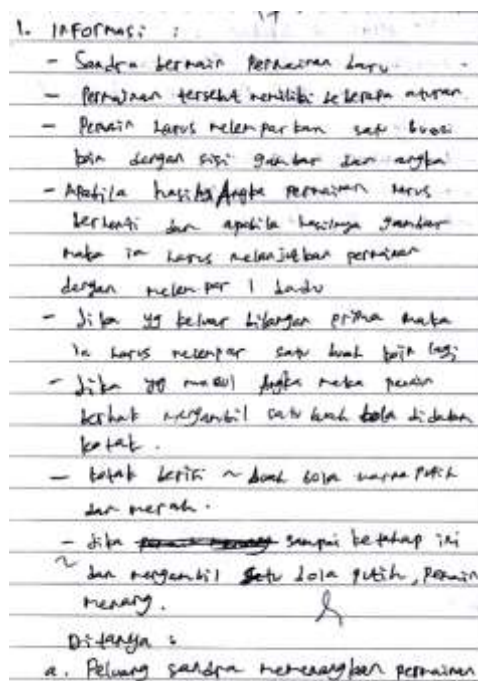 1. Informasi :
- Sandra bermain Permainan baru
- Permainan tersebut memiliki beberapa aturan
- Pemain harus melemparkan satu buah
koin dengan sisi gambar dan angka
- Apabila hasilnya Angka permainan harus
berhenti dan apabila hasilnya gambar
maka ia harus melanjutkan permainan
dengan melempar 1 dadu
- Jika yg keluar bilangan prima maka
ia harus melempar satu buah koin lagi
- Jika yg muncul Angka maka pemain
berhak mengambil satu buah bola didalam
kotak.
- kotak berisi ~ buah bola warna putih
dan merah.
- Jika sampai ketahap ini
~ dan mengambil satu bola putih, pemain
menang.
Ditanya :
a. Peluang sandra memenangkan permainan